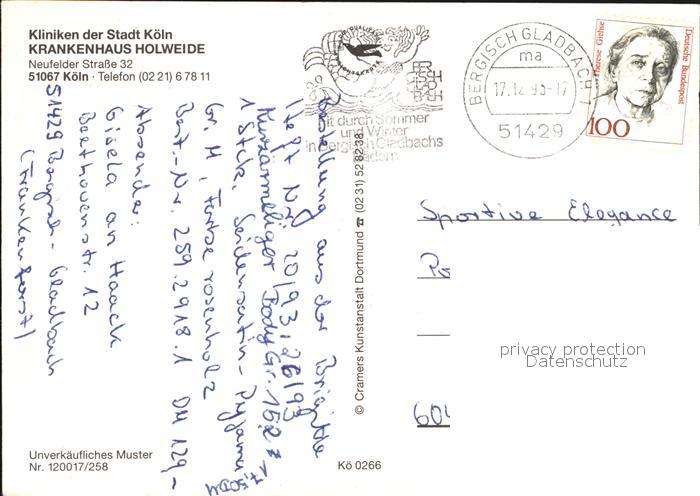 Kliniken der Stadt Köln
KRANKENHAUS HOLWEIDE
Neufelder Straße 32
51067 Köln · Telefon (02 21) 6 78 11
BER
GISCH
GLAD
BACH
Fit durch Sommer
und Winter
in Bergisch Gladbachs
Bädern
BERGISCH GLADBACH 1
ma
17.12.93-17
51429
Therese Giehse
Deutsche Bundespost
100
Bestellung aus der Brigitte
Heft Nr. 20/93, 26/93
Kurzärmeliger Body Gr. 152
1 Stck. Seidensatin-Pyjama
Gr. M, Farbe rosenholz
Best-Nr. 259.2918.1 DM 129,-
Absender:
Gisela an Haack
Beethovenstr. 12
51429 Bergisch-Gladbach
(Frankenforst)
© Cramers Kunstanstalt Dortmund ☎ (0231) 52 82 38
Sportive Elegance
60
privacy protection
Datenschutz
Unverkäufliches Muster
Nr. 120017/258
Kö 0266